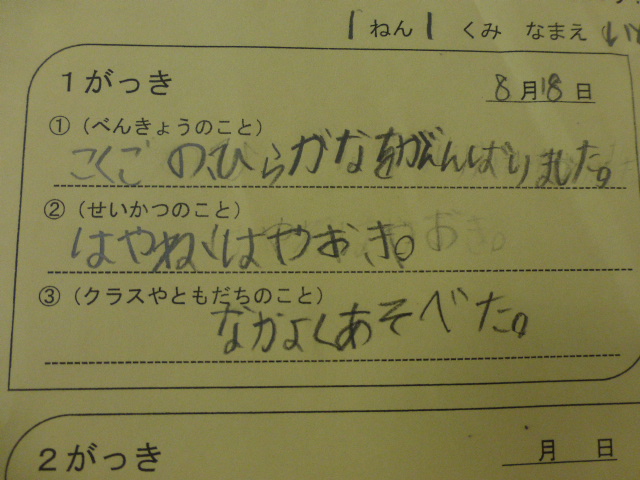 1ねん1くみ なまえ
1がっき
8月18日
①(べんきょうのこと)
こくごの、ひらがなをがんばりました。
②(せいかつのこと)
はやね、はやおき。
③(クラスやともだちのこと)
なかよくあそべた。
2がっき
月 日